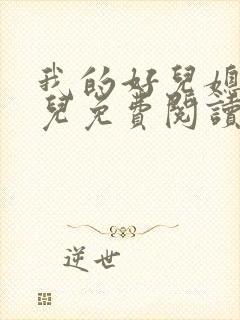 我的好兒媳
兒免費閱讀
逆世